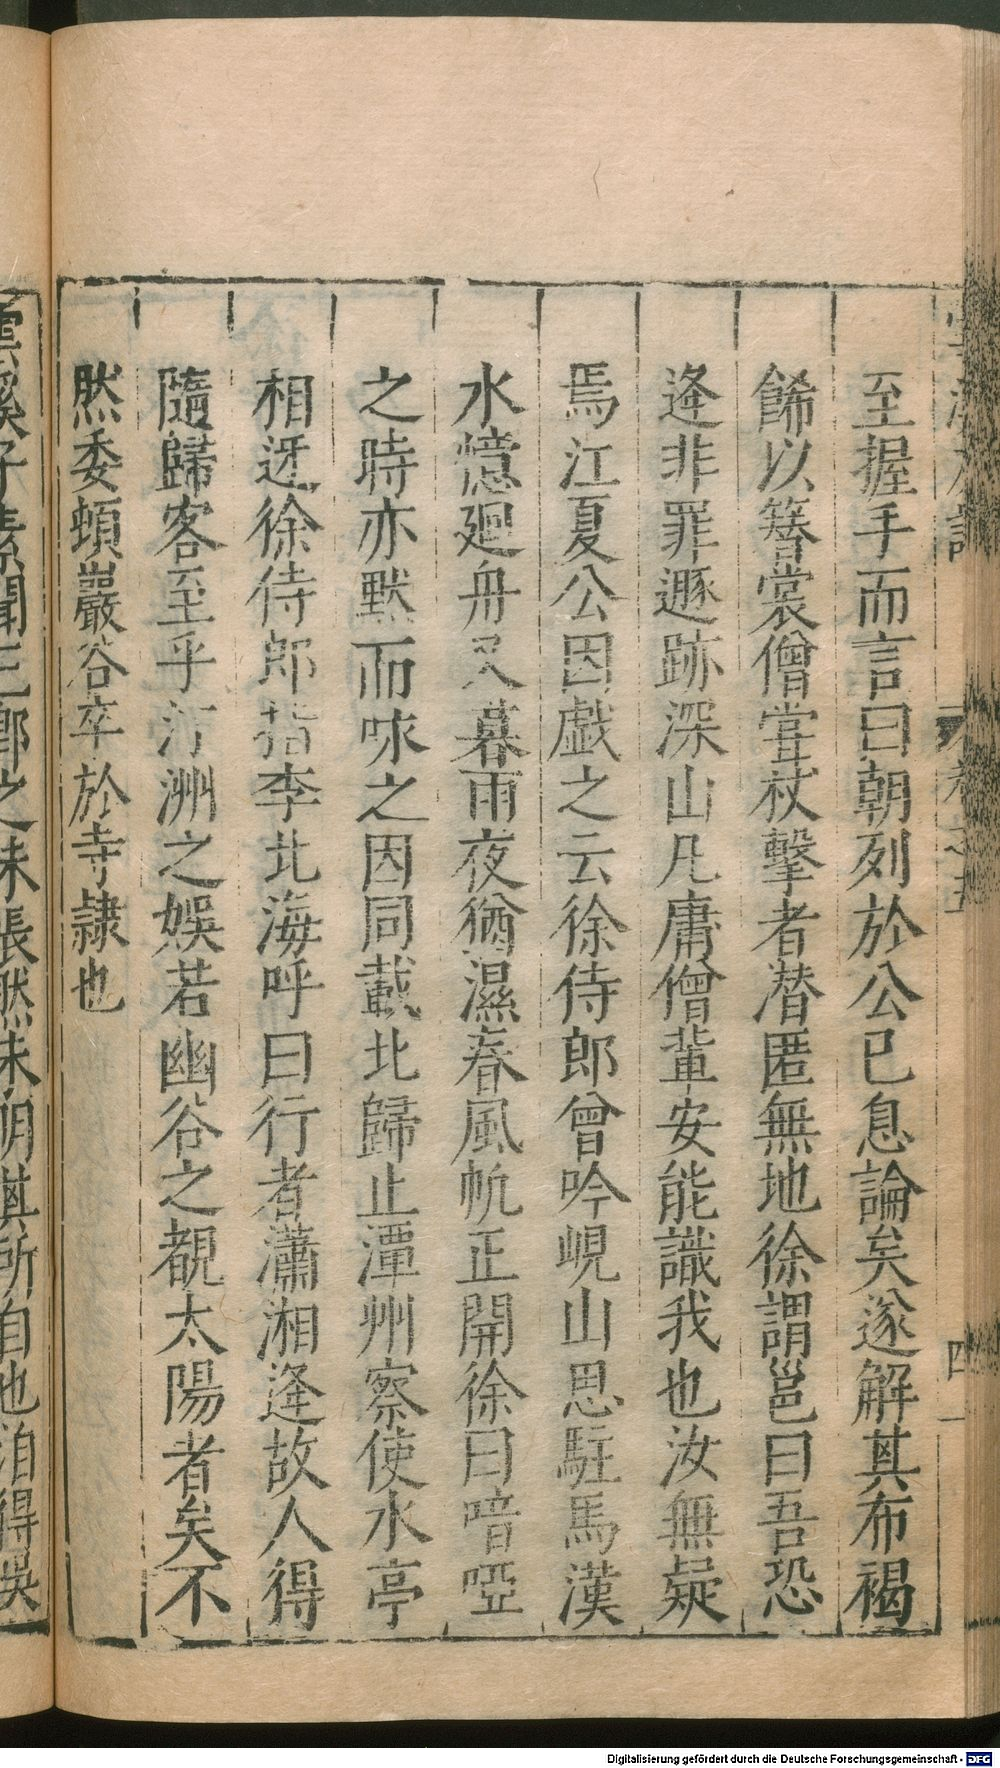 至握手而言曰朝列於公已息論矣遂解其布褐
餙以簪裳僧甞杖擊者潜匿無地徐謂邕曰吾恐
逄非罪遯跡深山凡庸僧輩安能識我也汝無疑
焉江夏公因戯之云徐侍郎曾吟峴山思駐馬漢
水憶廻舟又暮雨夜猶濕春風帆正開徐曰喑啞
之時亦默而咏之因同載北歸止潭州察使水亭
相迓徐侍郎指李北海呼曰行者瀟湘逄故人得
隨歸客至乎汀洲之娛若幽谷之覩太陽者矣不
然委頓巖谷卒於寺隷也
雲溪子素聞三鄉之未悵然未明其所自也洎得吳
四
Digitalisierung gefördert durch die Deutsche Forschungsgemeinschaft - DFG